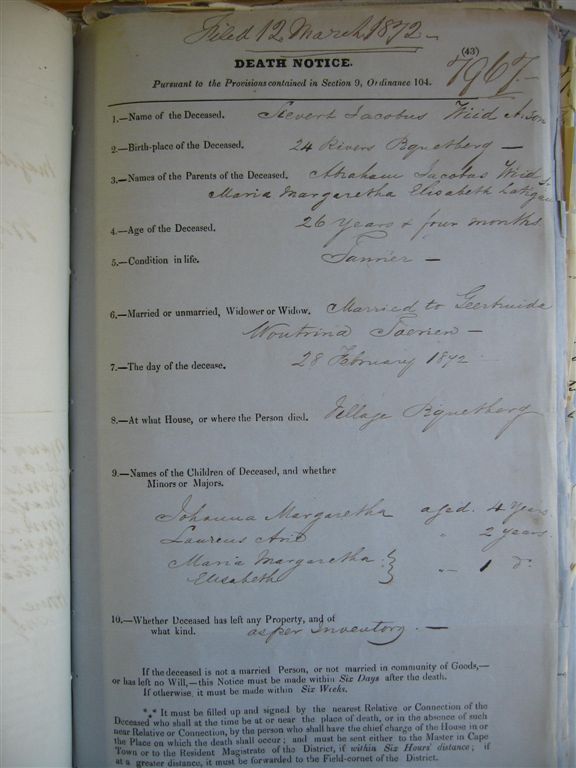 Filed 12 March 1872 -
(43)
DEATH NOTICE.
7967 -
Pursuant to the Provisions contained in Section 9, Ordinance 104.
1.—Name of the Deceased. Sievert Jacobus Wiid A. Son
2.—Birth-place of the Deceased. 24 Rivers Piquetberg —
3.—Names of the Parents of the Deceased. Abraham Jacobus Wiid &
Maria Margaretha Elisabeth Lategan
4.—Age of the Deceased. 26 Years & four months
5.—Condition in life. Tanner —
6.—Married or unmarried, Widower or Widow. Married to Geertruida
Woutrina —
7.—The day of the decease. 28 February 1872
8.—At what House, or where the Person died. Village Piquetberg
9.—Names of the Children of Deceased, and whether
Minors or Majors.
Johanna Margaretha aged. 4 Years
Laurens " 2 years.
Maria Margaretha } " 1 d.
Elisabeth
10.—Whether Deceased has left any Property, and of
what kind. as per Inventory. —
If the deceased is not a married Person, or not married in community of Goods,—
or has left no Will,—this Notice must be made within Six Days after the death.
If otherwise, it must be made within Six Weeks.
*** It must be filled up and signed by the nearest Relative or Connection of the
Deceased who shall at the time be at or near the place of death, or in the absence of such
near Relative or Connection, by the person who shall have the chief charge of the House in or
the Place on which the death shall occur; and must be sent either to the Master in Cape
Town or to the Resident Magistrate of the District, if within Six Hours' distance; if
at a greater distance, it must be forwarded to the Field-cornet of the District.